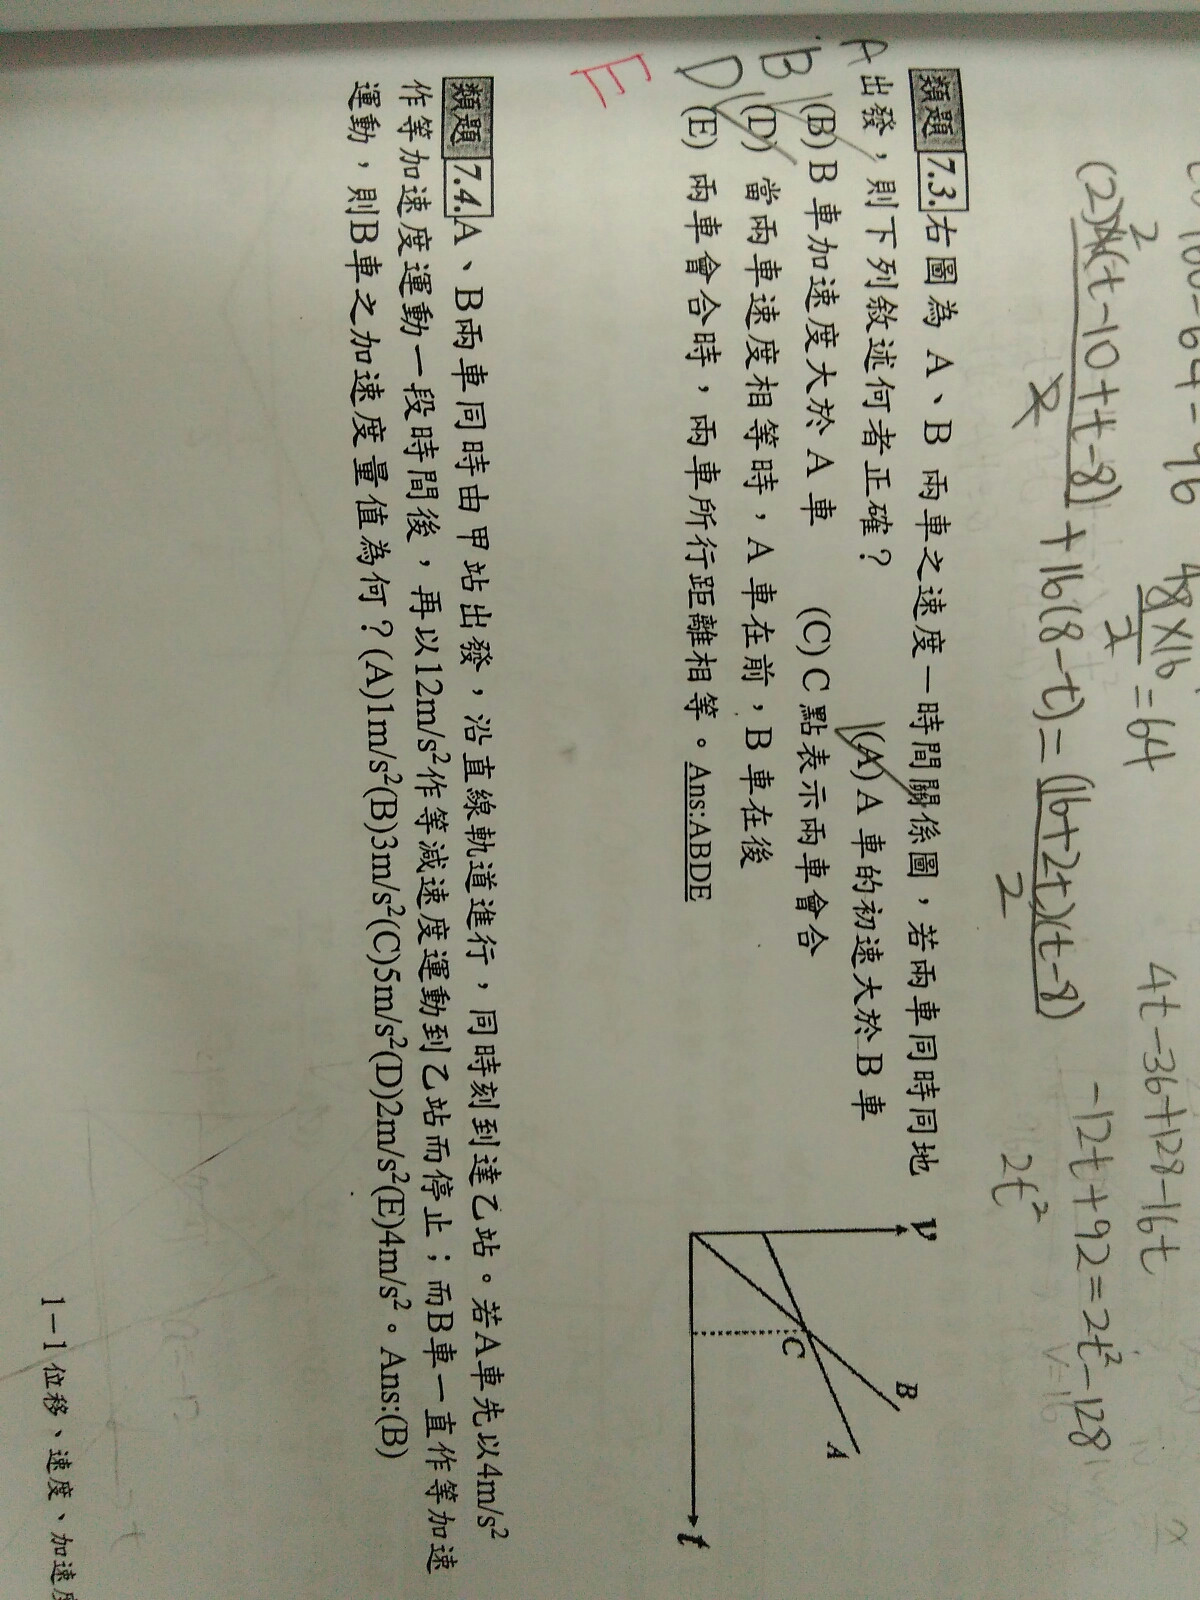 48×16
2
=64
4t-36+128-16t
(2)
2
(t-10+t-8)
2
+16(8-t)=
(16+2t)(t-8)
2
-12t+92=2t²-128
2t²
類題 7.3. 右圖為 A、B 兩車之速度一時間關係圖，若兩車同時同地
出發，則下列敘述何者正確？ (A) A 車的初速大於 B 車
(B) B 車加速度大於 A 車 (C) C 點表示兩車會合
(D) 當兩車速度相等時，A 車在前，B 車在後
(E) 兩車會合時，兩車所行距離相等。Ans:ABDE
A
B
D
E
V
B
A
C
t
類題 7.4. A、B兩車同時由甲站出發，沿直線軌道進行，同時刻到達乙站。若A車先以4m/s²
作等加速度運動一段時間後，再以12m/s²作等減速度運動到乙站而停止；而B車一直作等加速
運動，則B車之加速度量值為何？(A)1m/s²(B)3m/s²(C)5m/s²(D)2m/s²(E)4m/s²。Ans:(B)
1－1 位移、速度、加速度